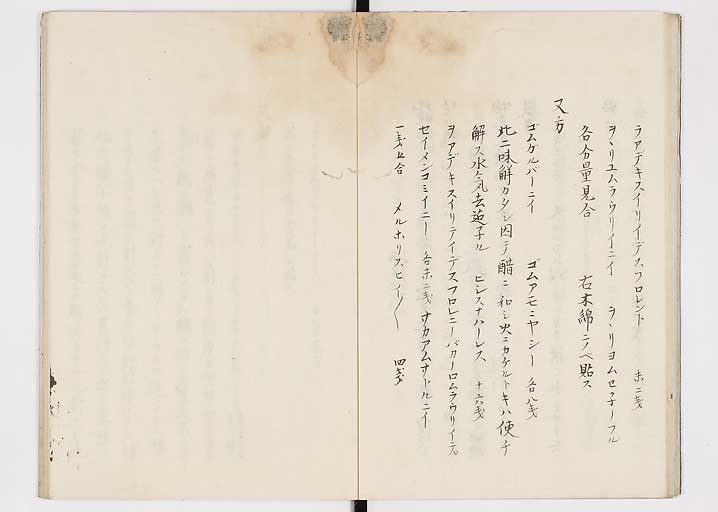 ラアデキスイリイデスフロレント 末二戔
ヲヽリユムラウリイニイ ヲヽリヨムセ子ーフル
各分量見合 右木綿ニノベ貼ス
又方
ゴムガルバーニイ ゴムアモニヤシー 各八戔
此二味解カタシ因テ醋ニ和シ火ニカケルトキハ便チ
解ス水気去迠子ル ヒシスナハーレス 十六戔
ヲアデキスイリテイデスフロレニーバカーロムラウリイテ
セイメンコミイニー 各末二戔 サカアムサトルニイ
一戔五合 メルホリスヒイ 四戔